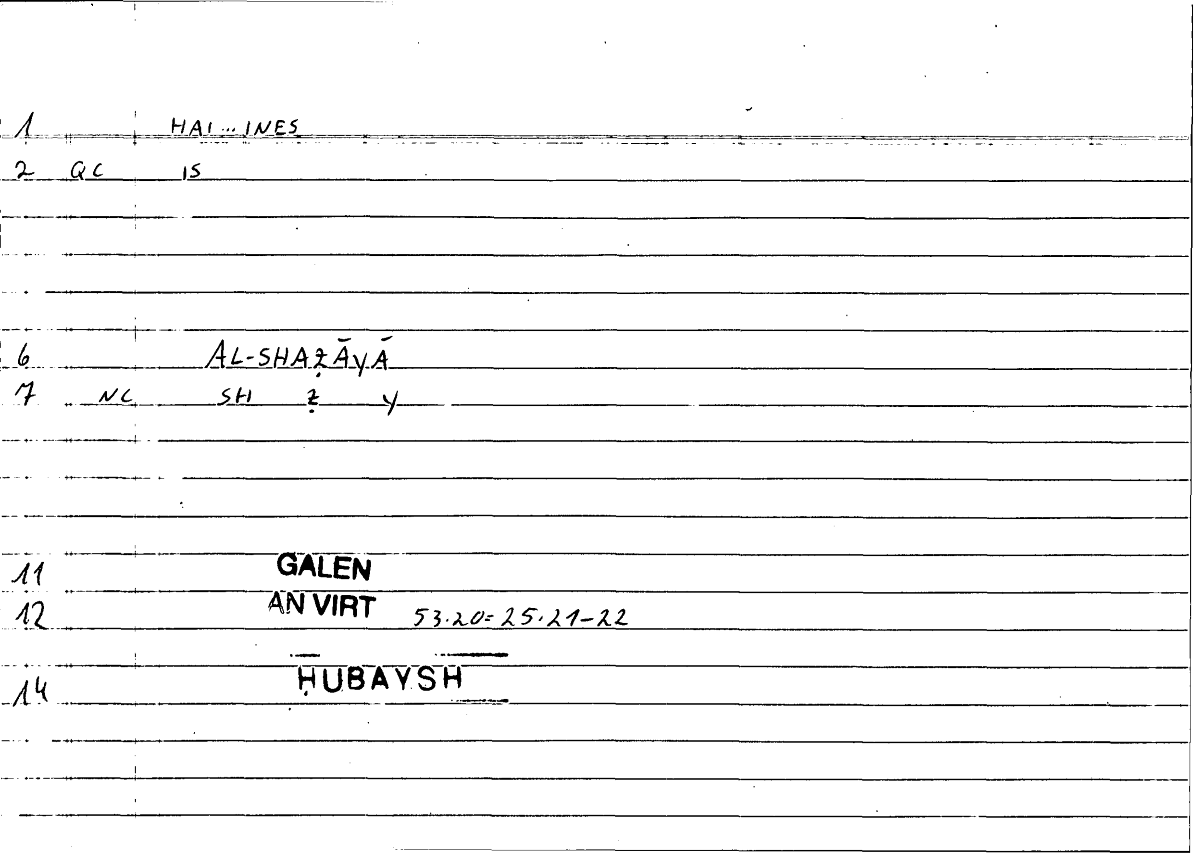 1 HAI...INES
2 QC IS
6 AL-SHAẒĀYĀ
7 NC SH Ẓ Y
11 GALEN
12 AN VIRT 53.20=25.21-22
14 ḤUBAYSH